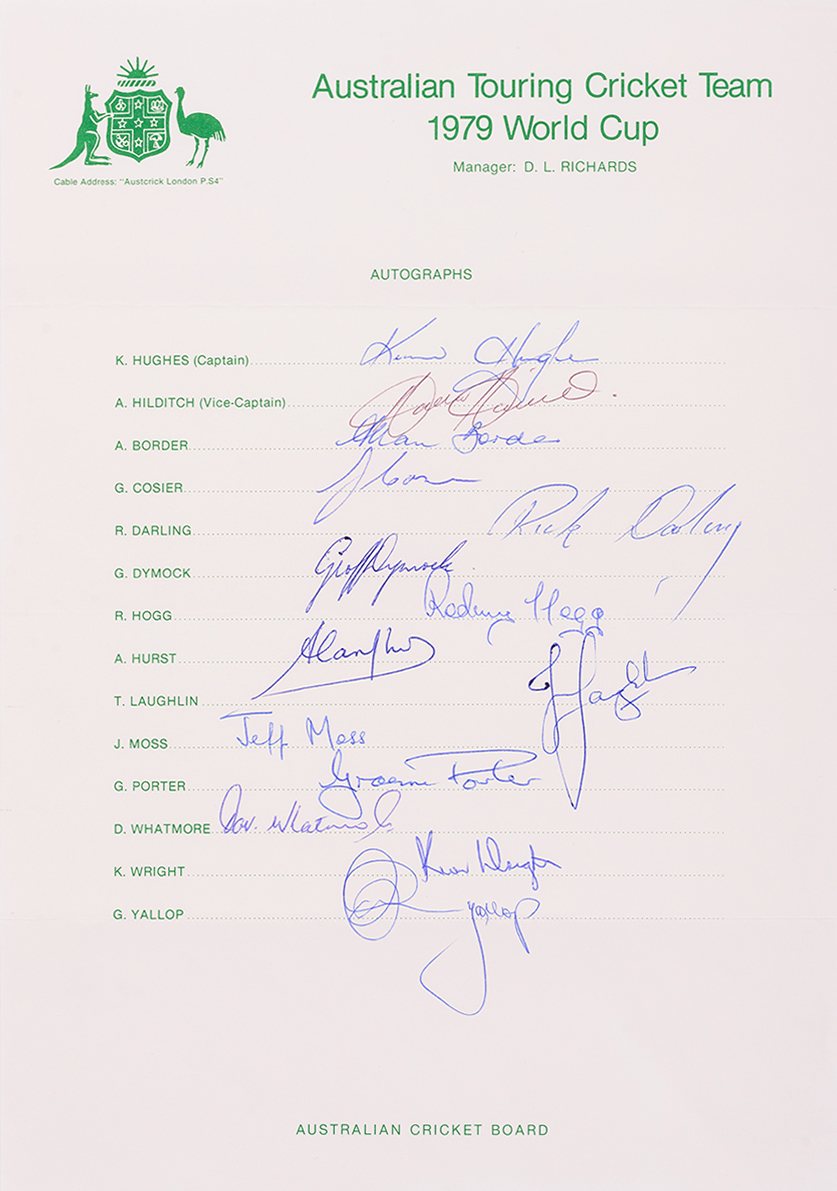 Australian Touring Cricket Team
1979 World Cup
Manager: D. L. RICHARDS
Cable Address: "Austcrick London P.S4"
AUTOGRAPHS
K. HUGHES (Captain) Kim Hughes
A. HILDITCH (Vice-Captain)
A. BORDER Allan Border
G. COSIER
R. DARLING Rick Darling
G. DYMOCK Geoff Dymock
R. HOGG Rodney Hogg
A. HURST Alan Hurst
T. LAUGHLIN
J. MOSS Jeff Moss
G. PORTER Graeme Porter
D. WHATMORE Dav. Whatmore
K. WRIGHT Kevin Wright
G. YALLOP G Yallop
AUSTRALIAN CRICKET BOARD